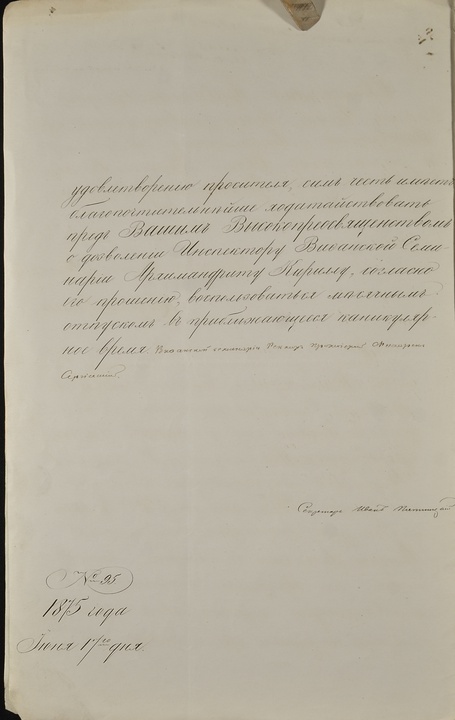 удовлетворенію просителя, симъ честь имѣетъ
благопочтительнѣйше ходатайствовать
предъ Вашимъ Высокопреосвященствомъ
о дозволеніи Инспектору Виѳанской Семи-
наріи Архимандриту Кириллу, согласно
его прошенію, воспользоваться мѣсячнымъ
отпускомъ въ приближающееся каникуляр-
ное время. Виѳанской семинаріи Ректоръ Протоіерей Филаретъ
Сергіевскій
Секретарь Иванъ
№ 95
1875 года
Іюня 17го дня.